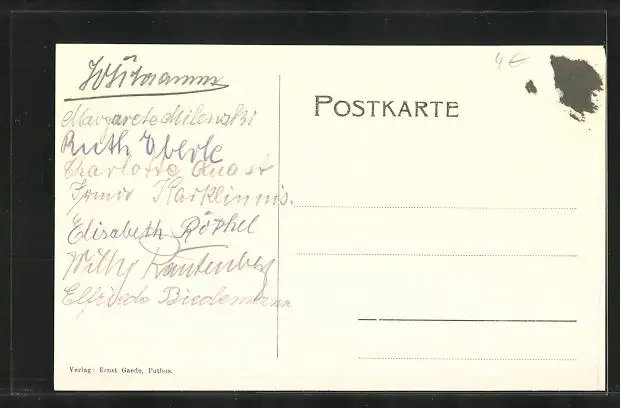 4 €
POSTKARTE
Margarete Milewski
Ruth Eberle
Charlotte Quast
Irmir Karklinnis.
Elisabeth Röthel
Willy Rautenberg
Elfriede Biedemann
Verlag: Ernst Gaede, Putbus.